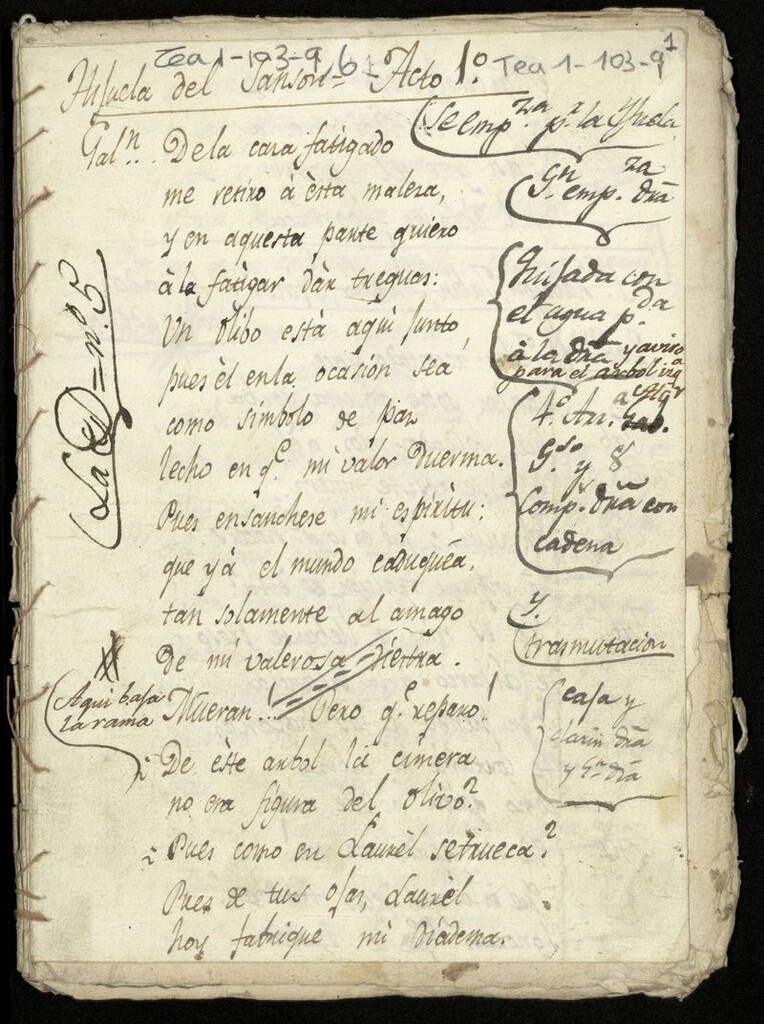 Tea 1-103-9, 6
Tea 1-103-9
1
Ahijuela del Sanson = Acto 1º
Galⁿ.. De la caza fatigado
me retiro à èsta maleza,
y en aquesta parte quiero
à la fatigar dàr treguas:
Un olibo està aqui junto,
pues èl en la ocasión sea
como simbolo de paz
lecho en q.e mi valor duerma.
Pues ensanchese mi espiritu:
que yà el mundo caduquèa,
tan solamente al amago
de mi valerosa diestra.
Mueran!.. Pero q.e reparo!
¿De èste arbol la cimera
no era figura del olivo?
¿Pues como en Laurèl se trueca?
Pues de tus ojas, Laurèl
hoy fabrique mi diadema.
La D = nº 5
Aqui baja
la rama
Se emp.za p.r la
Gⁿ. emp.za dra
Quijada con
el agua p.da
à la dra y aviso
para el arbol izq.a
4.º An.
G.do y 8
Comp.s dra con
cadena
y.
trasmutacion
caja y
clarin dra
y Gⁿ dra